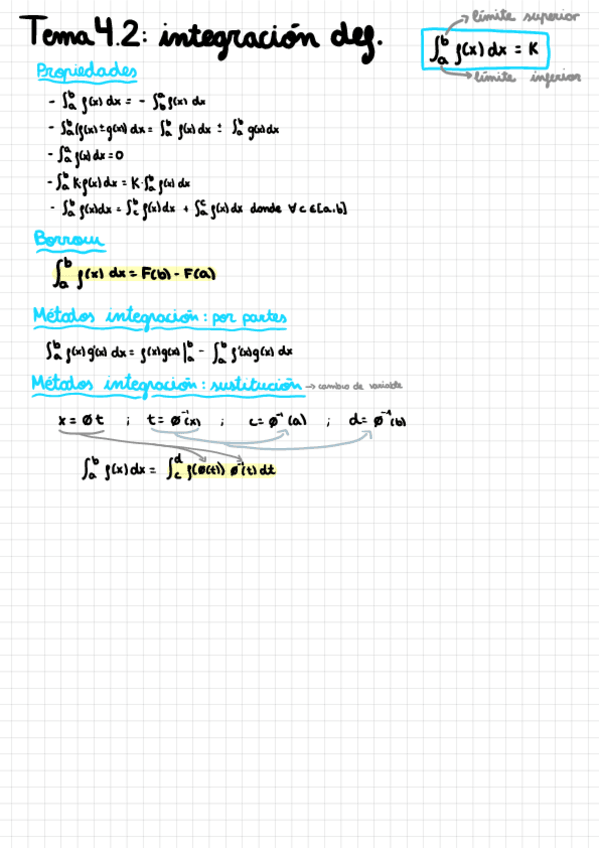 Tema 4.2: integración def.
límite superior
∫ₐᵇ f(x) dx = K
límite inferior
Propiedades
- ∫ₐᵇ f(x) dx = - ∫ₐᵇ f(x) dx
- ∫ₐᵇ (f(x) ± g(x)) dx = ∫ₐᵇ f(x) dx ± ∫ₐᵇ g(x) dx
- ∫ₐᵃ f(x) dx = 0
- ∫ₐᵇ K f(x) dx = K · ∫ₐᵇ f(x) dx
- ∫ₐᵇ f(x) dx = ∫_c^b f(x) dx + ∫ₐᶜ f(x) dx donde ∀ c ∈ [a,b]
Borrow
∫ₐᵇ f(x) dx = F(b) - F(a)
Métodos integración: por partes
∫ₐᵇ f(x) g'(x) dx = f(x) g(x) |ₐᵇ - ∫ₐᵇ f'(x) g(x) dx
Métodos integración: sustitución → cambio de variable
x = Ø t ; t = Ø⁻¹(x) ; c = Ø⁻¹ (a) ; d = Ø⁻¹ (b)
∫ₐᵇ f(x) dx = ∫_c^d f(Ø(t)) Ø⁻¹(t) dt